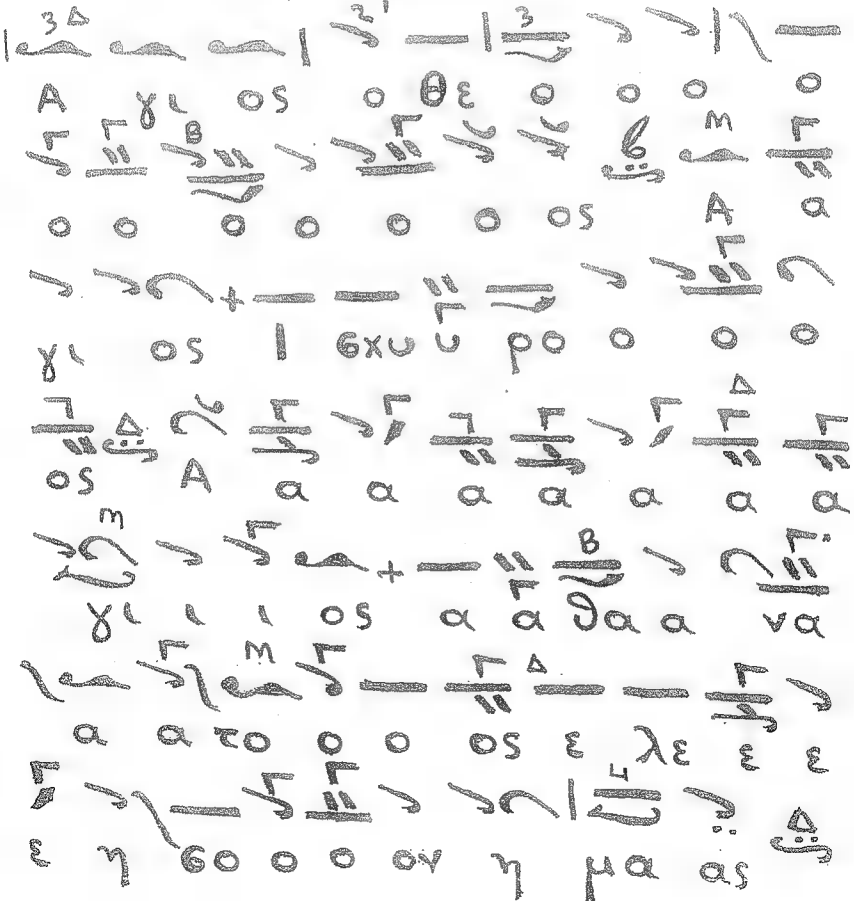 Α γι ος ο Θε ο ο ο ο
ο ο ο ο ο ο ος Α α
γι ος Ι σχυ υ ρο ο ο ο
ος Α α α α α α α α
γι ι ι ος α α θα α να
α α το ο ο ος ε λε ε ε
ε η σο ο ο ον η μα ας